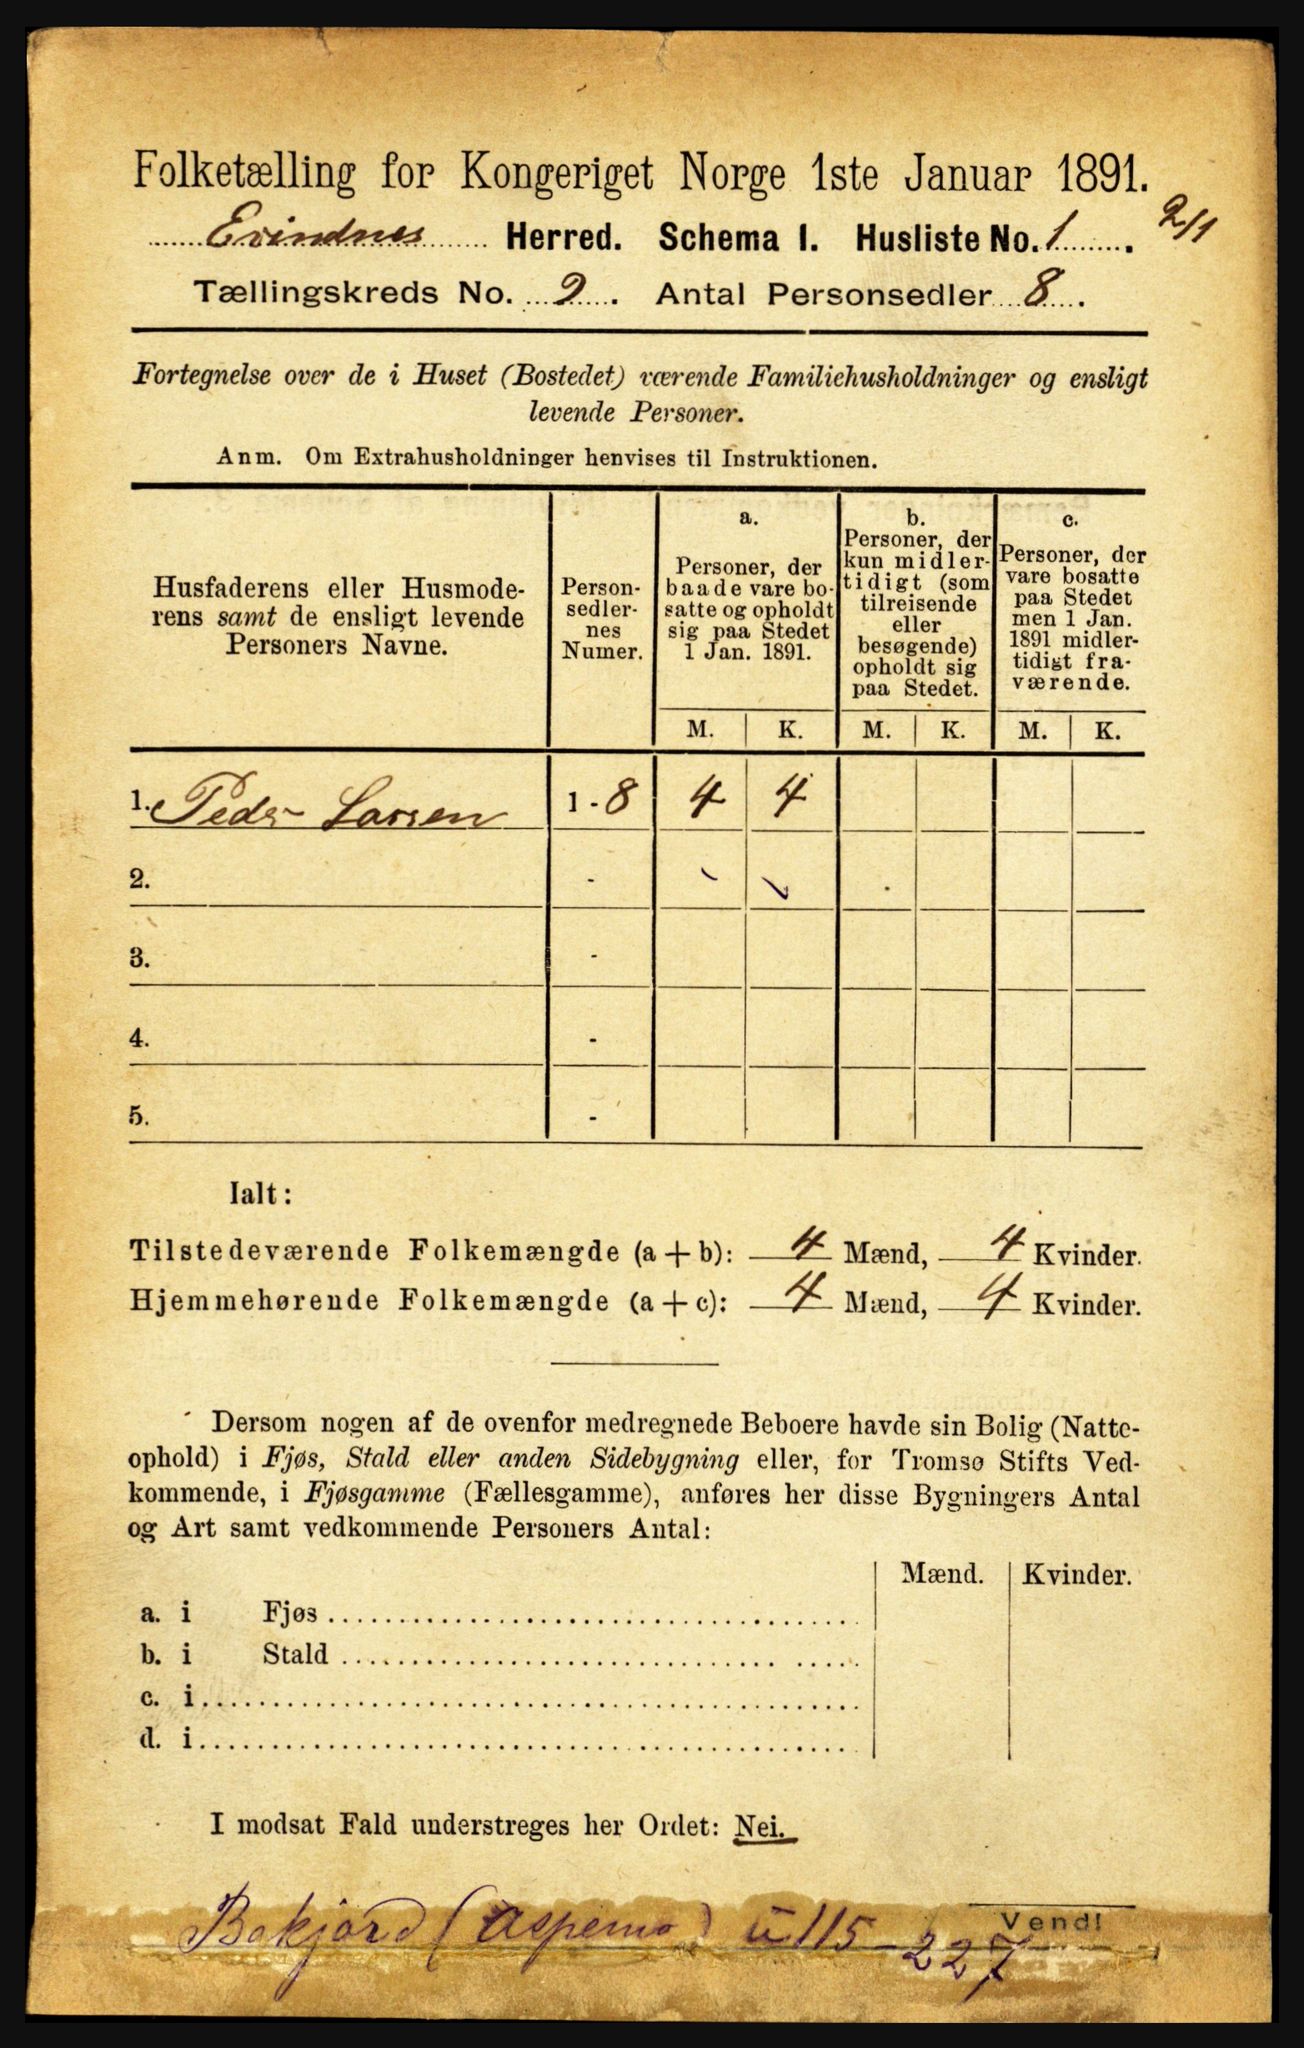 Folketælling for Kongeriget Norge 1ste Januar 1891.
Evindnes Herred. Schema I. Husliste No. 1. 2/1
Tællingskreds No. 2. Antal Personsedler 8.
Fortegnelse over de i Huset (Bostedet) værende Familiehusholdninger og ensligt
levende Personer.
Anm. Om Extrahusholdninger henvises til Instruktionen.
Husfaderens eller Husmode-
rens samt de ensligt levende
Personers Navne.
Person-
sedler-
nes
Numer.
a.
Personer, der
baade vare bo-
satte og opholdt
sig paa Stedet
1 Jan. 1891.
b.
Personer, der
kun midler-
tidigt (som
tilreisende
eller
besøgende)
opholdt sig
paa Stedet.
c.
Personer, der
vare bosatte
paa Stedet
men 1 Jan.
1891 midler-
tidigt fra-
værende.
M. K. M. K. M. K.
1. Peder Larsen 1 - 8 4 4
2. -
3. -
4. -
5. -
Ialt:
Tilstedeværende Folkemængde (a + b): 4 Mænd, 4 Kvinder.
Hjemmehørende Folkemængde (a + c): 4 Mænd, 4 Kvinder.
Dersom nogen af de ovenfor medregnede Beboere havde sin Bolig (Natte-
ophold) i Fjøs, Stald eller anden Sidebygning eller, for Tromsø Stifts Ved-
kommende, i Fjøsgamme (Fællesgamme), anføres her disse Bygningers Antal
og Art samt vedkommende Personers Antal:
Mænd. Kvinder.
a. i Fjøs
b. i Stald
c. i
d. i
I modsat Fald understreges her Ordet: Nei.
Vend!
Bokjord (Aspemo) 115 - 227